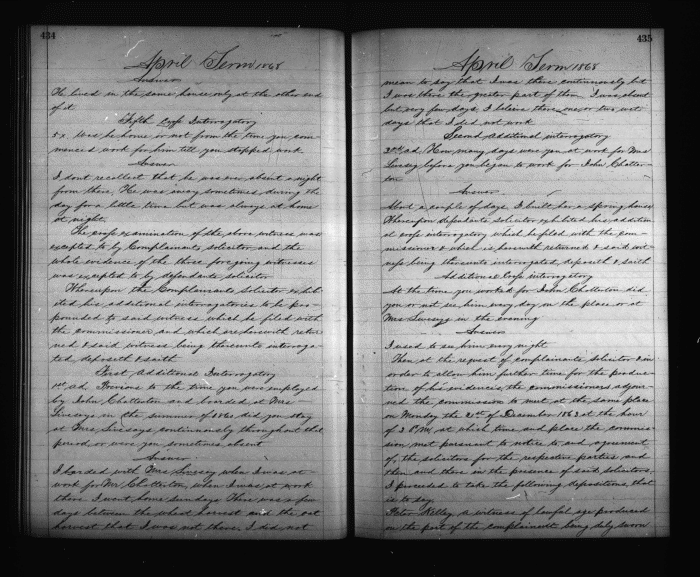 434
April Term 1868
Answer
He lived in the same house only at the other end
of it
Fifth Cross Interrogatory
5 x. Was he home or not from the time you com-
menced work for him till you stopped work
Answer
I dont recollect that he was ever absent a night
from there, He was away sometimes during the
day for a little time but was always at home
at night.
The cross examination of the above witness was
excepted to by Complainants solicitor and the
whole evidence of the three foregoing witnesses
was excepted to by defendants solicitor
Whereupon the Complainants Solicitor exhib-
ited his additional interrogatories to be pro-
pounded to said witness which he filed with
the commissioner and which are herewith retur-
ned & said witness being thereunto interroga-
ted deposeth & saith
First Additional Interrogatory
1st ad. Previous to the time you were employed
by John Chatterton and boarded at Mrs
Linseys in the summer of 1860 did you stay
at Mrs Linseys continuously throughout that
period, or were you sometimes absent
Answer
I boarded with Mrs Linsey when I was at
work for Mr Chatterton, when I was at work
there I went home Sundays There was a few
days between the wheat harvest and the oat
harvest that I was not there. I did not
435
April Term 1868
mean to say that I was there continuously but
I was there the greater part of time I was absent
but very few days I believe there one or two wet
days that I did not work
Second Additional interrogatory
2nd ad. How many days were you at work for Mrs
Linsey before you began to work for John Chatter-
ton
Answer
About a couple of days I built her a spring house
Whereupon defendants solicitor exhibited his addition-
al cross interrogatory which he filed with the com-
missioner & which is herewith returned & said wit-
ness being thereunto interrogated, deposeth & saith
Additional Cross interrogatory
At the time you worked for John Chatterton did
you or not see him every day in the place or at
Mrs Linseys in the evening
Answer
I used to see him every night
Then at the request of complainants solicitor & in
order to allow him further time for the produc-
tion of his evidence, the commissioners adjour-
ned the commission to met at the same place
on Monday the 21st of December 1863 at the hour
of 2 P.M. at which time and place the commis-
sion met pursuant to notice to and agreement
of, the solicitors for the respective parties and
then and there in the presence of said solicitors,
I proceeded to take the following depositions, that
is to say
Peter Kelley a witness of lawful age produced
on the part of the complainant being duly sworn